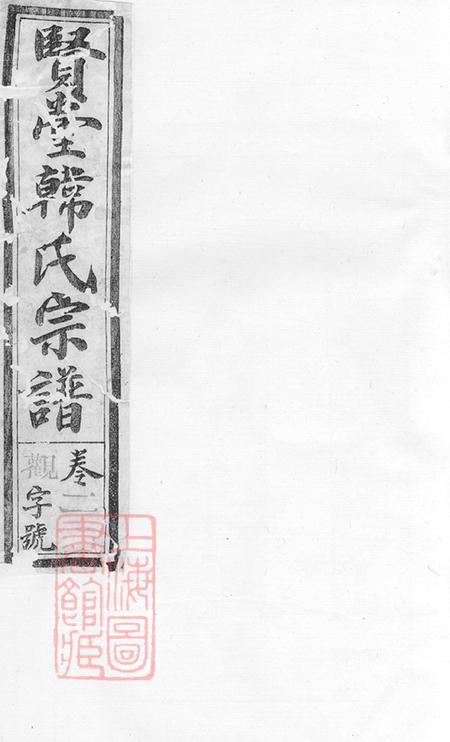 賢堂韓氏宗譜
卷二
觀字號
上海圖
書館臧